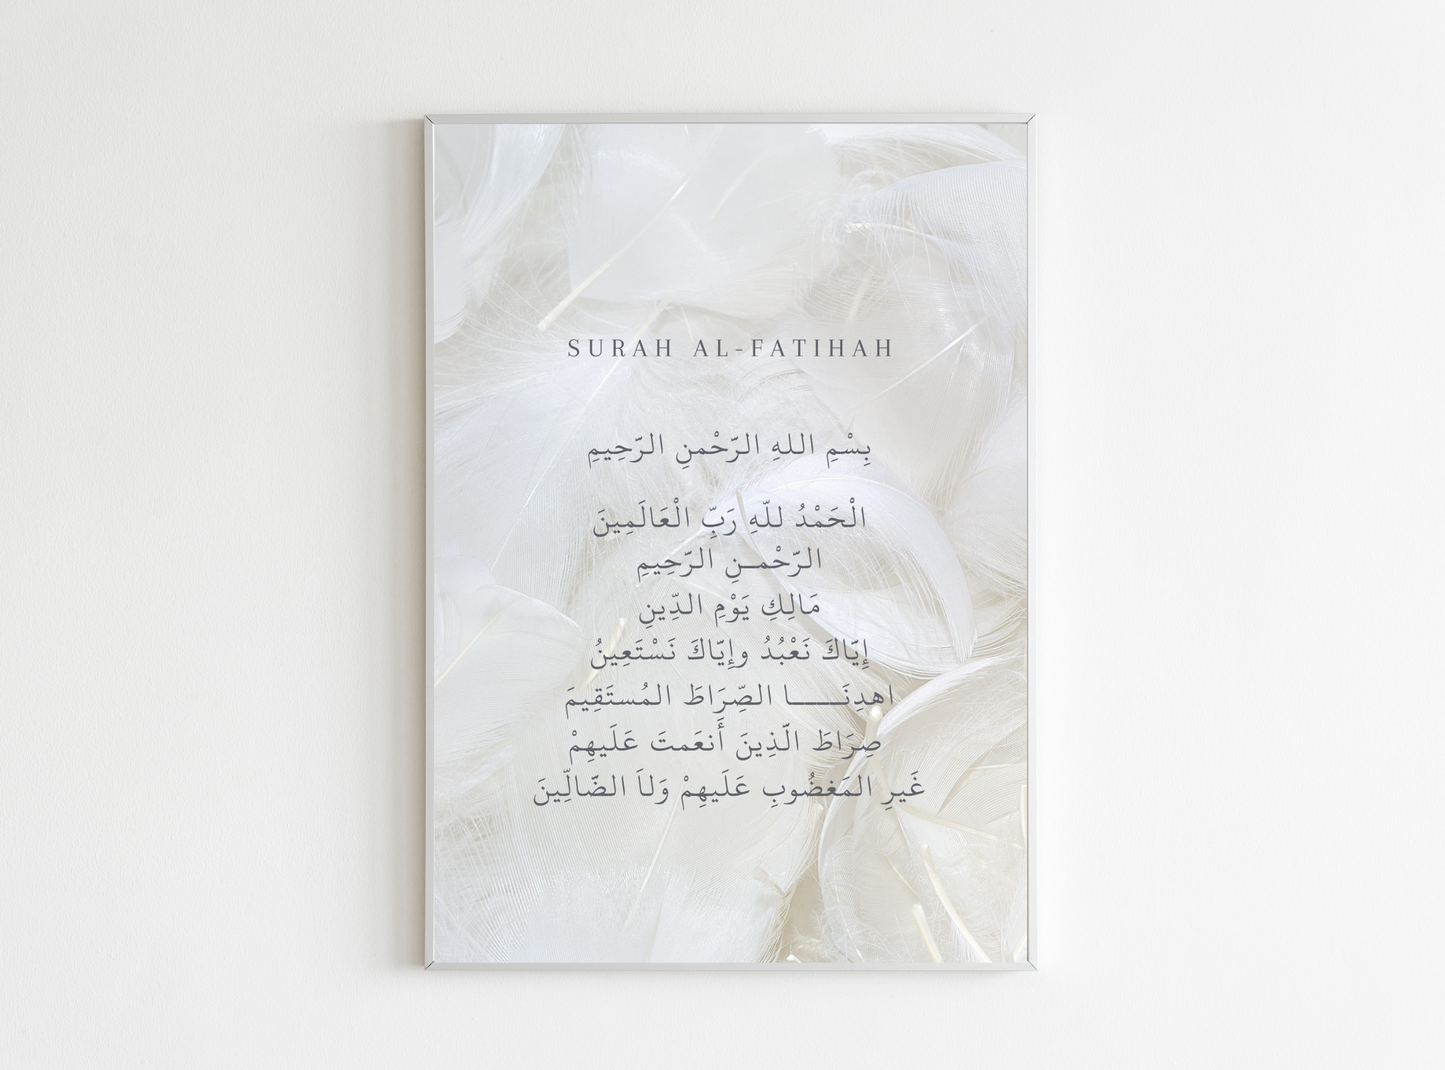 SURAH AL-FATIHAH
بِسْمِ اللهِ الرَّحْمنِ الرَّحِيمِ
الْحَمْدُ للّهِ رَبِّ الْعَالَمِينَ
الرَّحْمـنِ الرَّحِيمِ
مَالِكِ يَوْمِ الدِّينِ
إِيَّاكَ نَعْبُدُ وإِيَّاكَ نَسْتَعِينُ
اهدِنَــــا الصِّرَاطَ المُستَقِيمَ
صِرَاطَ الَّذِينَ أَنعَمتَ عَلَيهِمْ
غَيرِ المَغضُوبِ عَلَيهِمْ وَلاَ الضَّالِّينَ